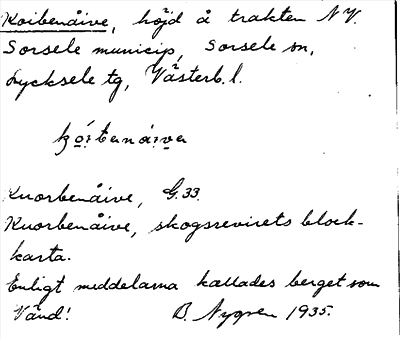 Koibenåive, höjd å trakten NV.
Sorsele municip, Sorsele sn,
Lycksele tg, Västerb. l.
Kuorbenåive, G.33.
Kuorbenåive, skogsrevirets block-
karta.
Enligt meddelarna kallades berget som
Vänd!
B. Nygren 1935.